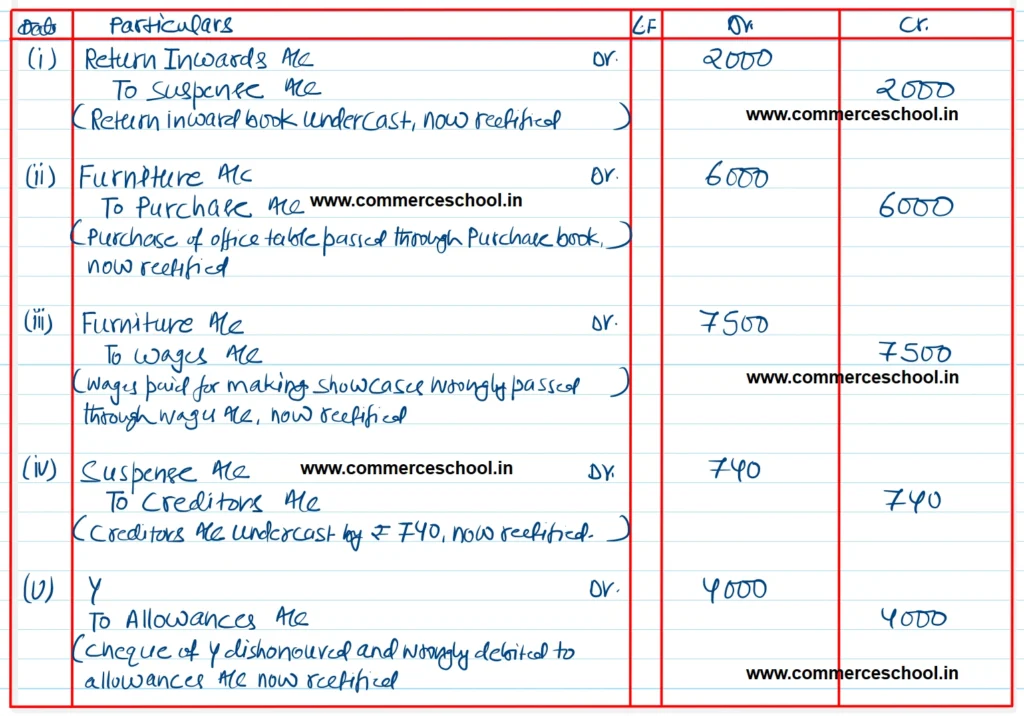 Date Particulars L.F Dr. Cr.
(i) Return Inwards A/c Dr. 2000
To Suspense A/c 2000
(Return inward book undercast, now rectified) www.commerceschool.in
(ii) Furniture A/c Dr. 6000
To Purchase A/c www.commerceschool.in 6000
(Purchase of office table passed through Purchase book,)
now rectified
(iii) Furniture A/c Dr. 7500
To Wages A/c 7500
(Wages paid for making showcases wrongly passed) www.commerceschool.in
through wages A/c, now rectified
(iv) Suspense A/c www.commerceschool.in Dr. 740
To Creditors A/c 740
(Creditors A/c undercast by ₹ 740, now rectified.)
(v) Y Dr. 4000
To Allowances A/c 4000
(Cheque of Y dishonoured and wrongly debited to
allowances A/c now rectified www.commerceschool.in